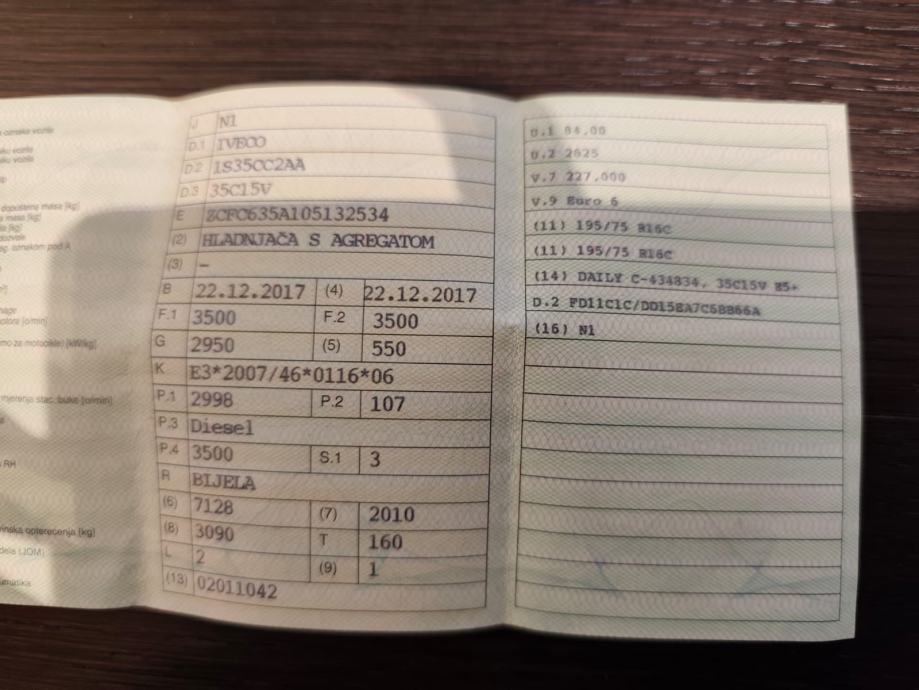 oznaka vozila
dopuštena masa [kg]
masa [kg]
[kg]
dozvole
oznakom pod A
[o/min]
mo za motocikle) [kW/kg]
mjerenja stac. buke [o/min]
RH
opterećenja [kg]
(JOM)
J N1
D.1 IVECO
D.2 IS35CC2AA
D.3 35C15V
E ZCFC635A105132534
(2) HLADNJAČA S AGREGATOM
(3) –
B 22.12.2017 (4) 22.12.2017
F.1 3500 F.2 3500
G 2950 (5) 550
K E3*2007/46*0116*06
P.1 2998 P.2 107
P.3 Diesel
P.4 3500 S.1 3
R BIJELA
(6) 7128 (7) 2010
(8) 3090 T 160
L 2 (9) 1
(13) 02011042
U.1 84,00
U.2 2625
V.7 227,000
V.9 Euro 6
(11) 195/75 R16C
(11) 195/75 R16C
(14) DAILY C-434834, 35C15V 85+
D.2 FD11C1C/DD15BA7C6BB66A
(16) N1